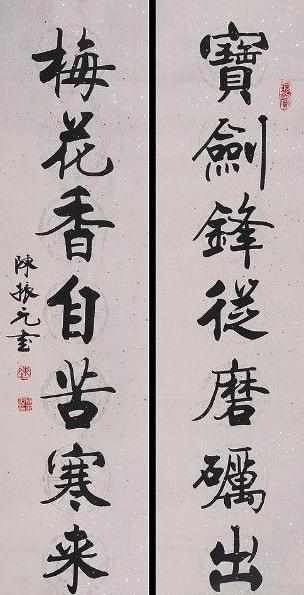 寶劍鋒從磨礪出
梅花香自苦寒来
陳振元書